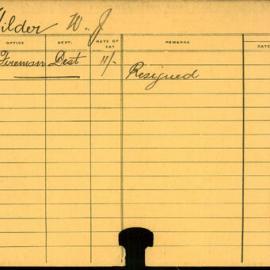 Wilder W. J.
OFFICE DEPT. RATE OF PAY REMARKS DATE
Fireman Dest 11/- Resigned